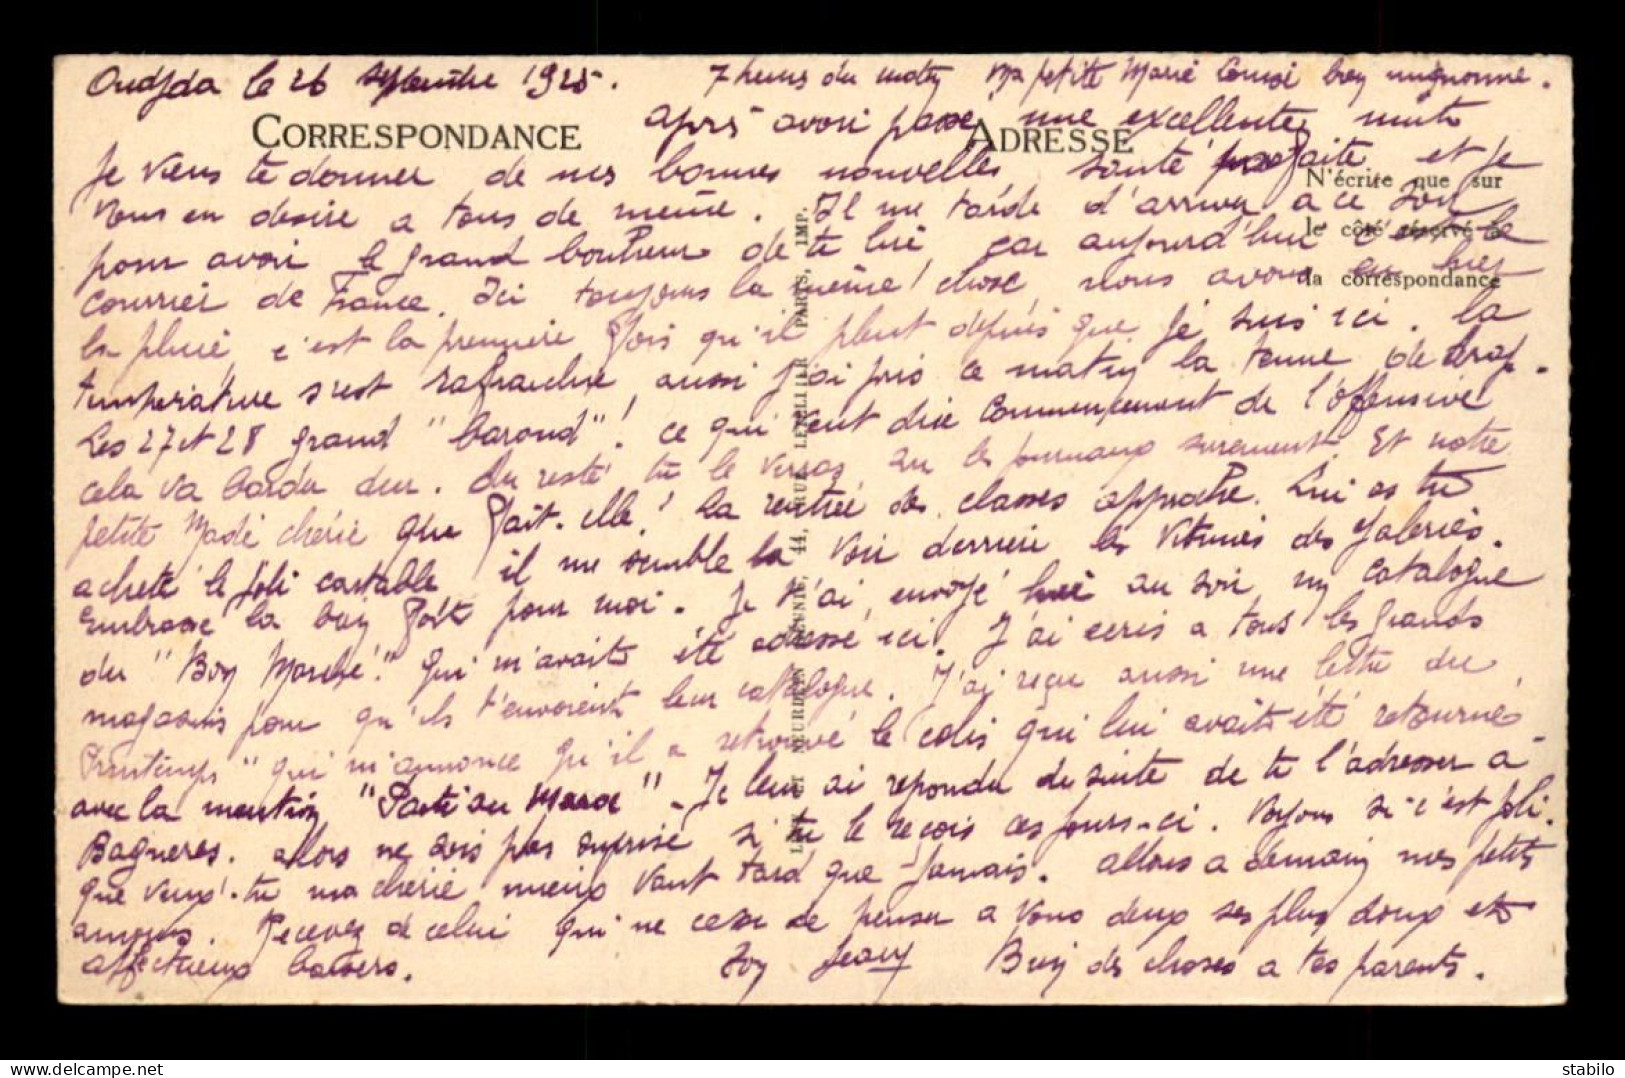 Oudjda le 26 septembre 1925. 7 heures du matin Ma petite Marie Louise bien mignonne.
CORRESPONDANCE
ADRESSE
après avoir passé une excellente nuit
Je viens te donner de mes bonnes nouvelles, santé parfaite et je
N'écrire que sur
vous en desire a tous de meme. Il me tarde d'arriver a ce soir
le côté réservé à
pour avoir le grand bonheur de te lire, car aujourd'hui le
la correspondance
courrier de France. Ici toujours la même chose, nous avons eu hier
la pluie, c'est la premiere fois qu'il pleut depuis que je suis ici. La
température s'est rafraichie, aussi j'ai pris ce matin la tenue de drap.
Les 27 et 28 grand "baroud"! ce qui veut dire commencement de l'offensive
cela va barder dur. Du reste tu le verras sur les journaux surement. Et notre
petite Made cherie que fait-elle! La rentrée des classes approche. Lui as tu
acheté le joli cartable il me semble la voir derriere les vitrines des Galeries.
Embrasse la bien fort pour moi. Je t'ai envoyé hier au soir un catalogue
du "Bon Marché" qui m'avait été adressé ici. J'ai ecris a tous les grands
magasins pour qu'ils t'envoient leur catalogue. J'ai reçu aussi une lettre du
Printemps" qui m'annonce qu'il a retrouvé le colis qui lui avait été retourné
avec la mention "Parti au Maroc". Je leur ai repondu de suite de te l'adresser a
Bagneres. Alors ne sois pas surprise si tu le reçois ces jours-ci. Voyons si c'est joli.
que veux-tu ma cherie mieux vaut tard que jamais. Allons a demain mes petits
amours. Recevez de celui qui ne cesse de penser a vous deux ses plus doux et
affectueux baisers. Ton Jean Bien des choses a tes parents.
NEURDEIN RÉUNIS, 44, RUE LETELLIER PARIS, IMP.
www.stabilo